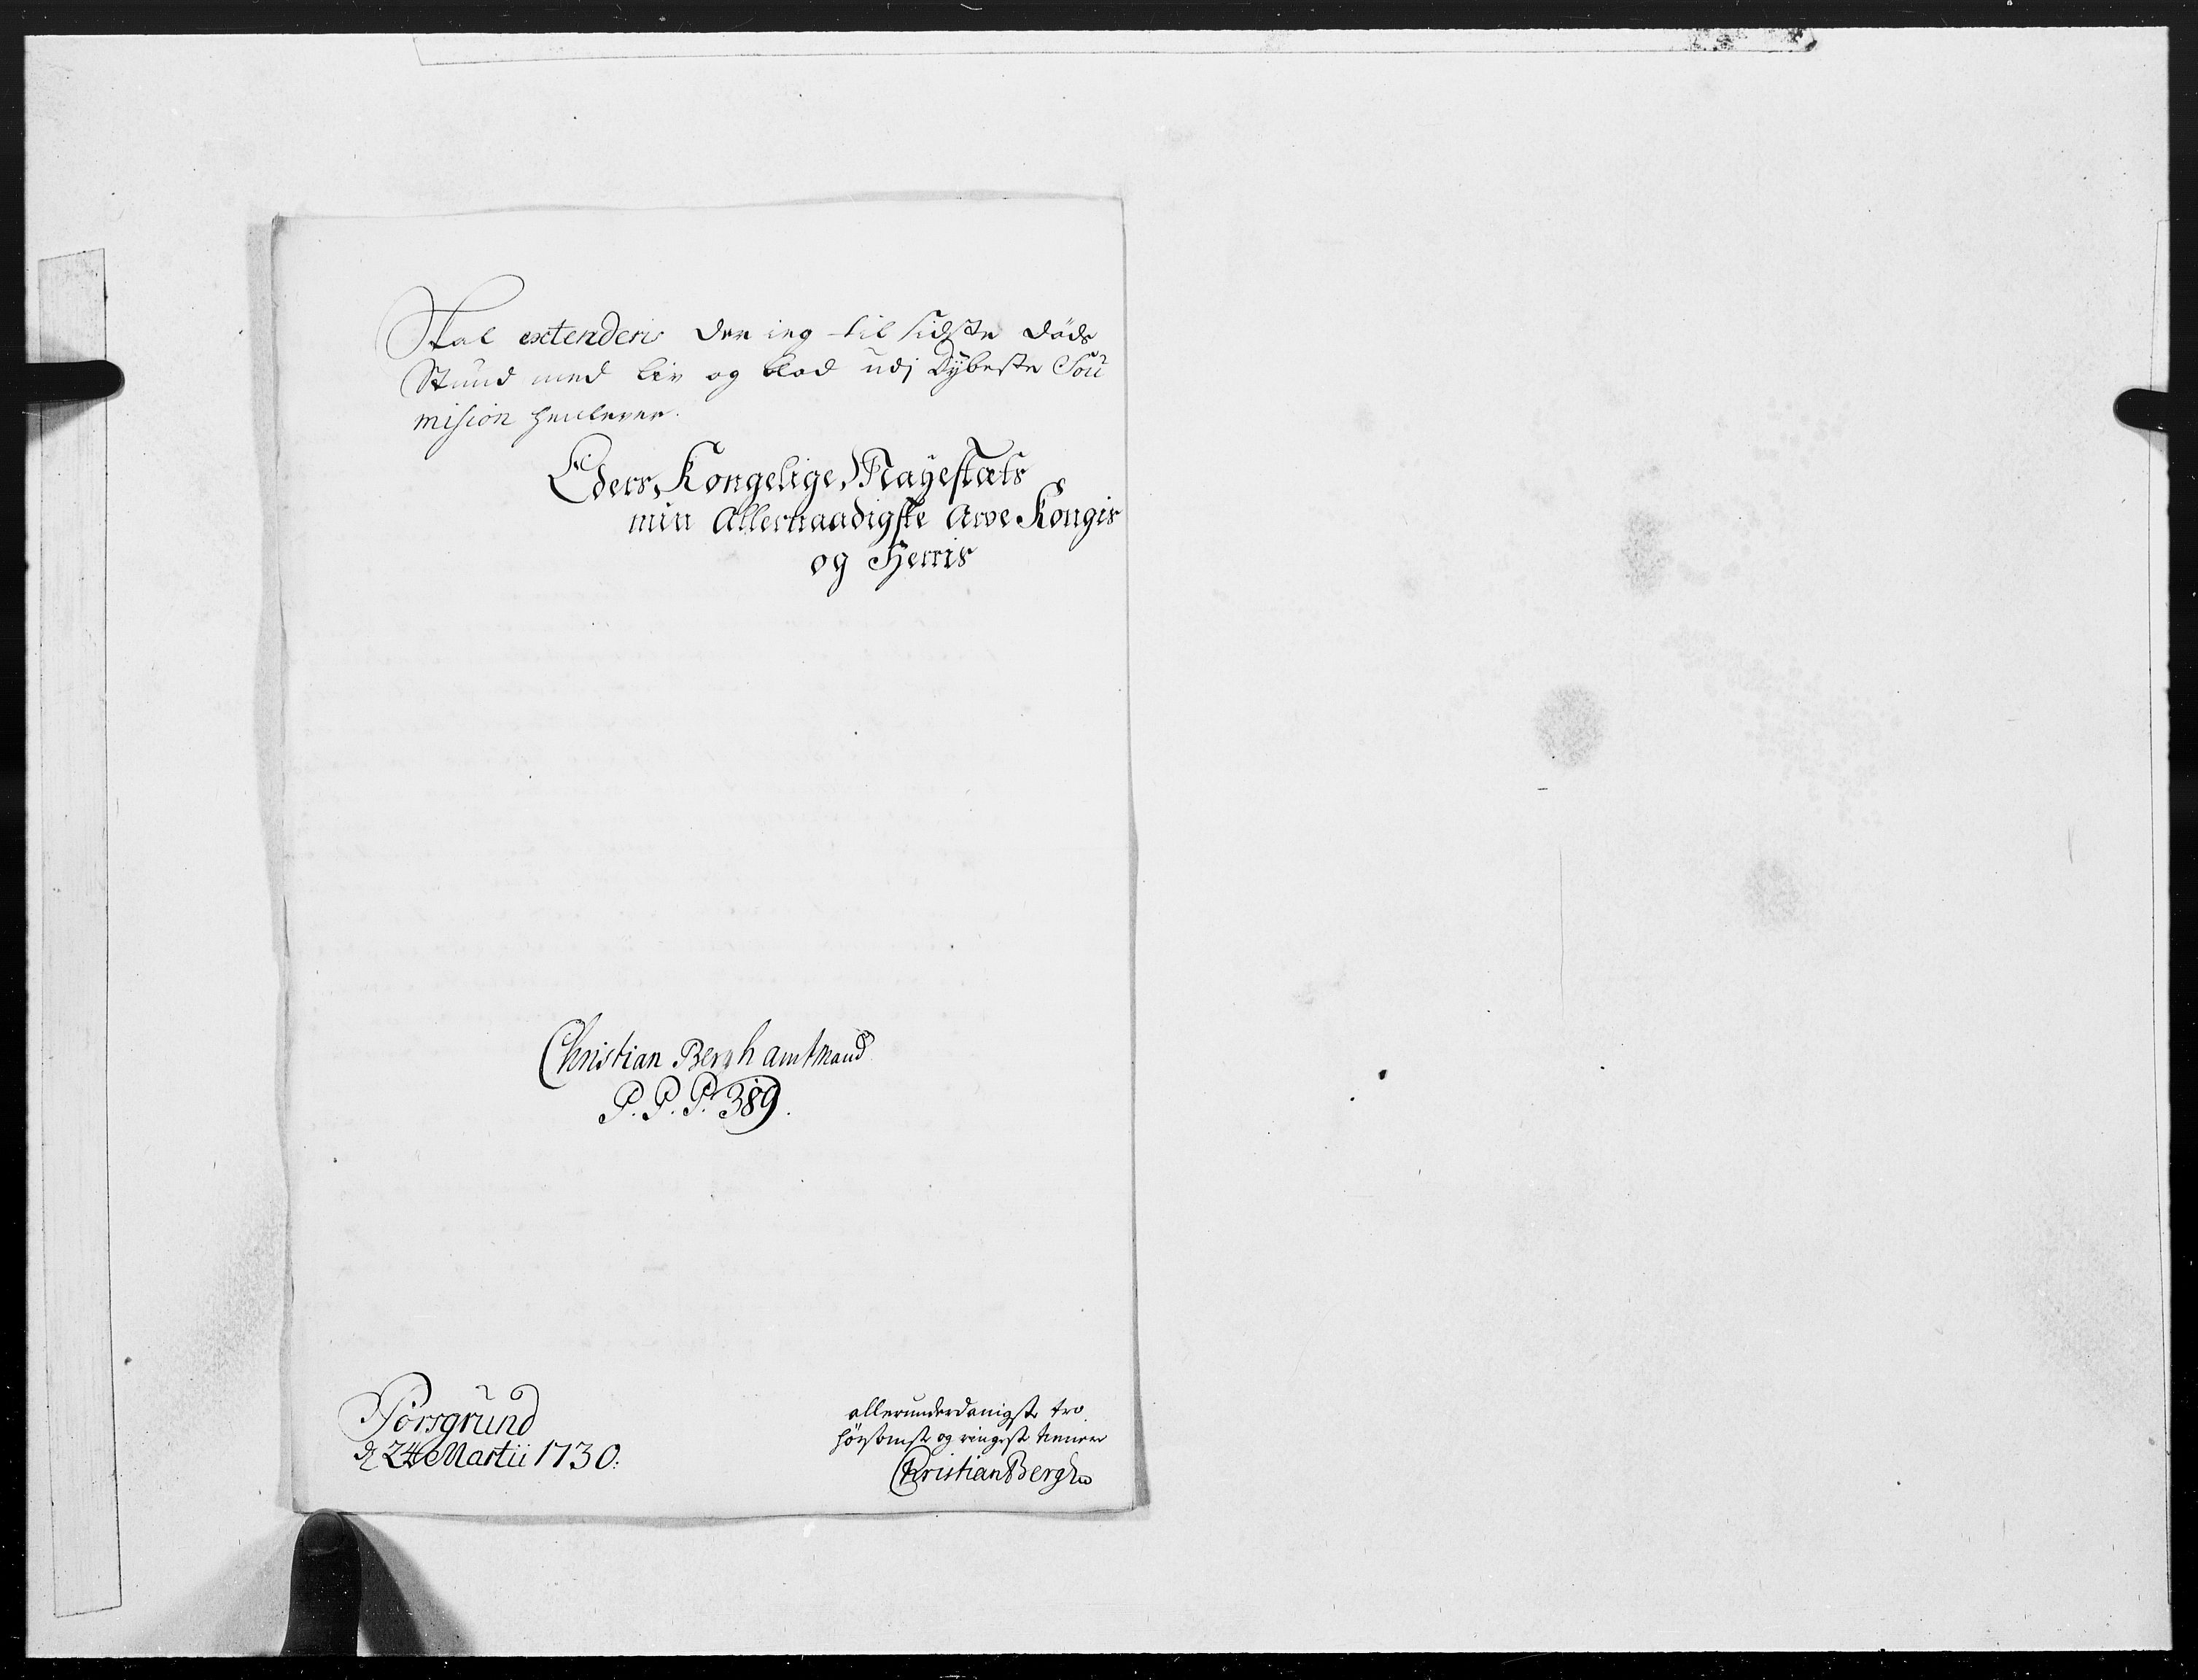 Skal extenderis der ieg til sidste Döds
Stund med liv og blod udj Dÿbeste Sou
mision henlever.
Eders Kongelige Mayestæts
min Allernaadigste Arve Kongis
og Herris
Christian Bergh amtmand
P. P. P. 389.
Porsgrund
d 24 Martii 1730.
allerunderdanigste tro
hörsomst og ringeste tienere
Christian Bergh